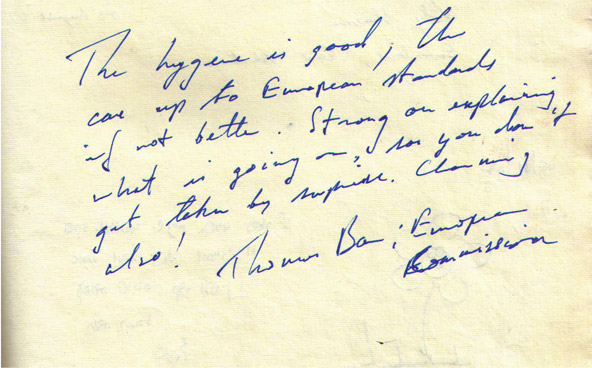 The hygene is good, the
care up to European standards
if not better. Strong on explaining
what is going on, so you don't
get taken by suprise. Charming
also! Thomas : European
Commission